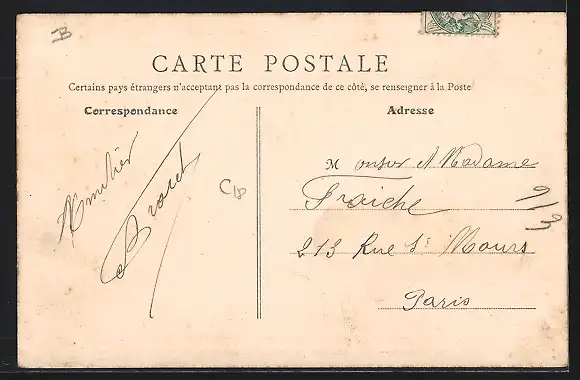 B
CARTE POSTALE
Certains pays étrangers n'acceptant pas la correspondance de ce côté, se renseigner à la Poste
Correspondance
Adresse
C18
M onsur et Madame
Fraiche
213 Rue St Maurs
Paris